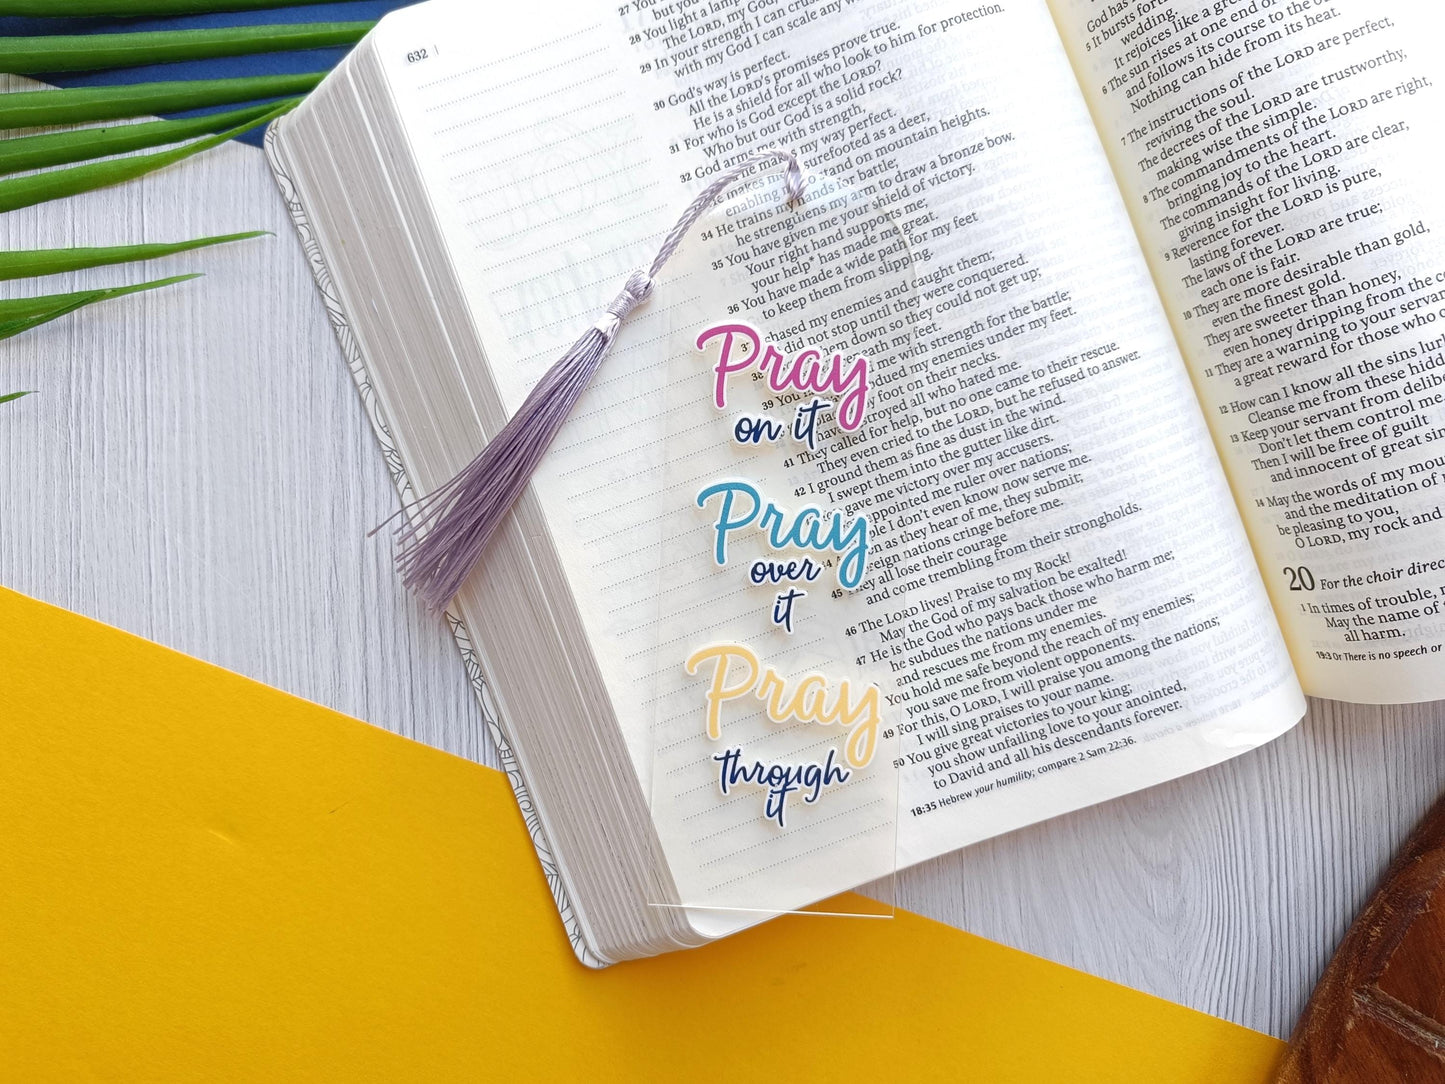 632
27 You
but you
28 You light a lamp
The LORD, my God,
29 In your strength I can crush
with my God I can scale any
30 God's way is perfect.
All the LORD's promises prove true.
He is a shield for all who look to him for protection.
31 For who is God except the LORD?
Who but our God is a solid rock?
32 God arms me with strength,
my way perfect.
surefooted as a deer,
stand on mountain heights.
34 He trains my hands for battle;
he strengthens my arm to draw a bronze bow.
35 You have given me your shield of victory.
Your right hand supports me;
your help* has made me great.
36 You have made a wide path for my feet
to keep them from slipping.
chased my enemies and caught them;
did not stop until they were conquered.
them down so they could not get up;
my feet.
me with strength for the battle;
my enemies under my feet.
foot on their necks.
all who hated me.
41 They called for help, but no one came to their rescue.
They even cried to the LORD, but he refused to answer.
42 I ground them as fine as dust in the wind.
I swept them into the gutter like dirt.
gave me victory over my accusers.
appointed me ruler over nations;
I don't even know now serve me.
as they hear of me, they submit;
foreign nations cringe before me.
45 They all lose their courage
and come trembling from their strongholds.
46 The LORD lives! Praise to my Rock!
May the God of my salvation be exalted!
47 He is the God who pays back those who harm me;
he subdues the nations under me
and rescues me from my enemies.
You hold me safe beyond the reach of my enemies;
you save me from violent opponents.
49 For this, O LORD, I will praise you among the nations;
I will sing praises to your name.
50 You give great victories to your king;
you show unfailing love to your anointed,
to David and all his descendants forever.
18:35 Hebrew your humility; compare 2 Sam 22:36.
Pray
on it
Pray
over
it
Pray
through
it
God has
5 It bursts
wedding.
It rejoices like a
6 The sun rises at one end of
and follows its course to the
Nothing can hide from its heat.
7 The instructions of the LORD are perfect,
reviving the soul.
The decrees of the LORD are trustworthy,
making wise the simple.
8 The commandments of the LORD are right,
bringing joy to the heart.
The commands of the LORD are clear,
giving insight for living.
9 Reverence for the LORD is pure,
lasting forever.
The laws of the LORD are true;
each one is fair.
10 They are more desirable than gold,
even the finest gold.
They are sweeter than honey,
even honey dripping from the
11 They are a warning to your servant
a great reward for those who
12 How can I know all the sins
Cleanse me from these hidden
13 Keep your servant from
Don't let them control me
Then I will be free of guilt
and innocent of great
14 May the words of my
and the meditation of
be pleasing to you,
O LORD, my rock and
20 For the choir
1 In times of trouble,
May the name of
all harm.
19:3 Or There is no speech or